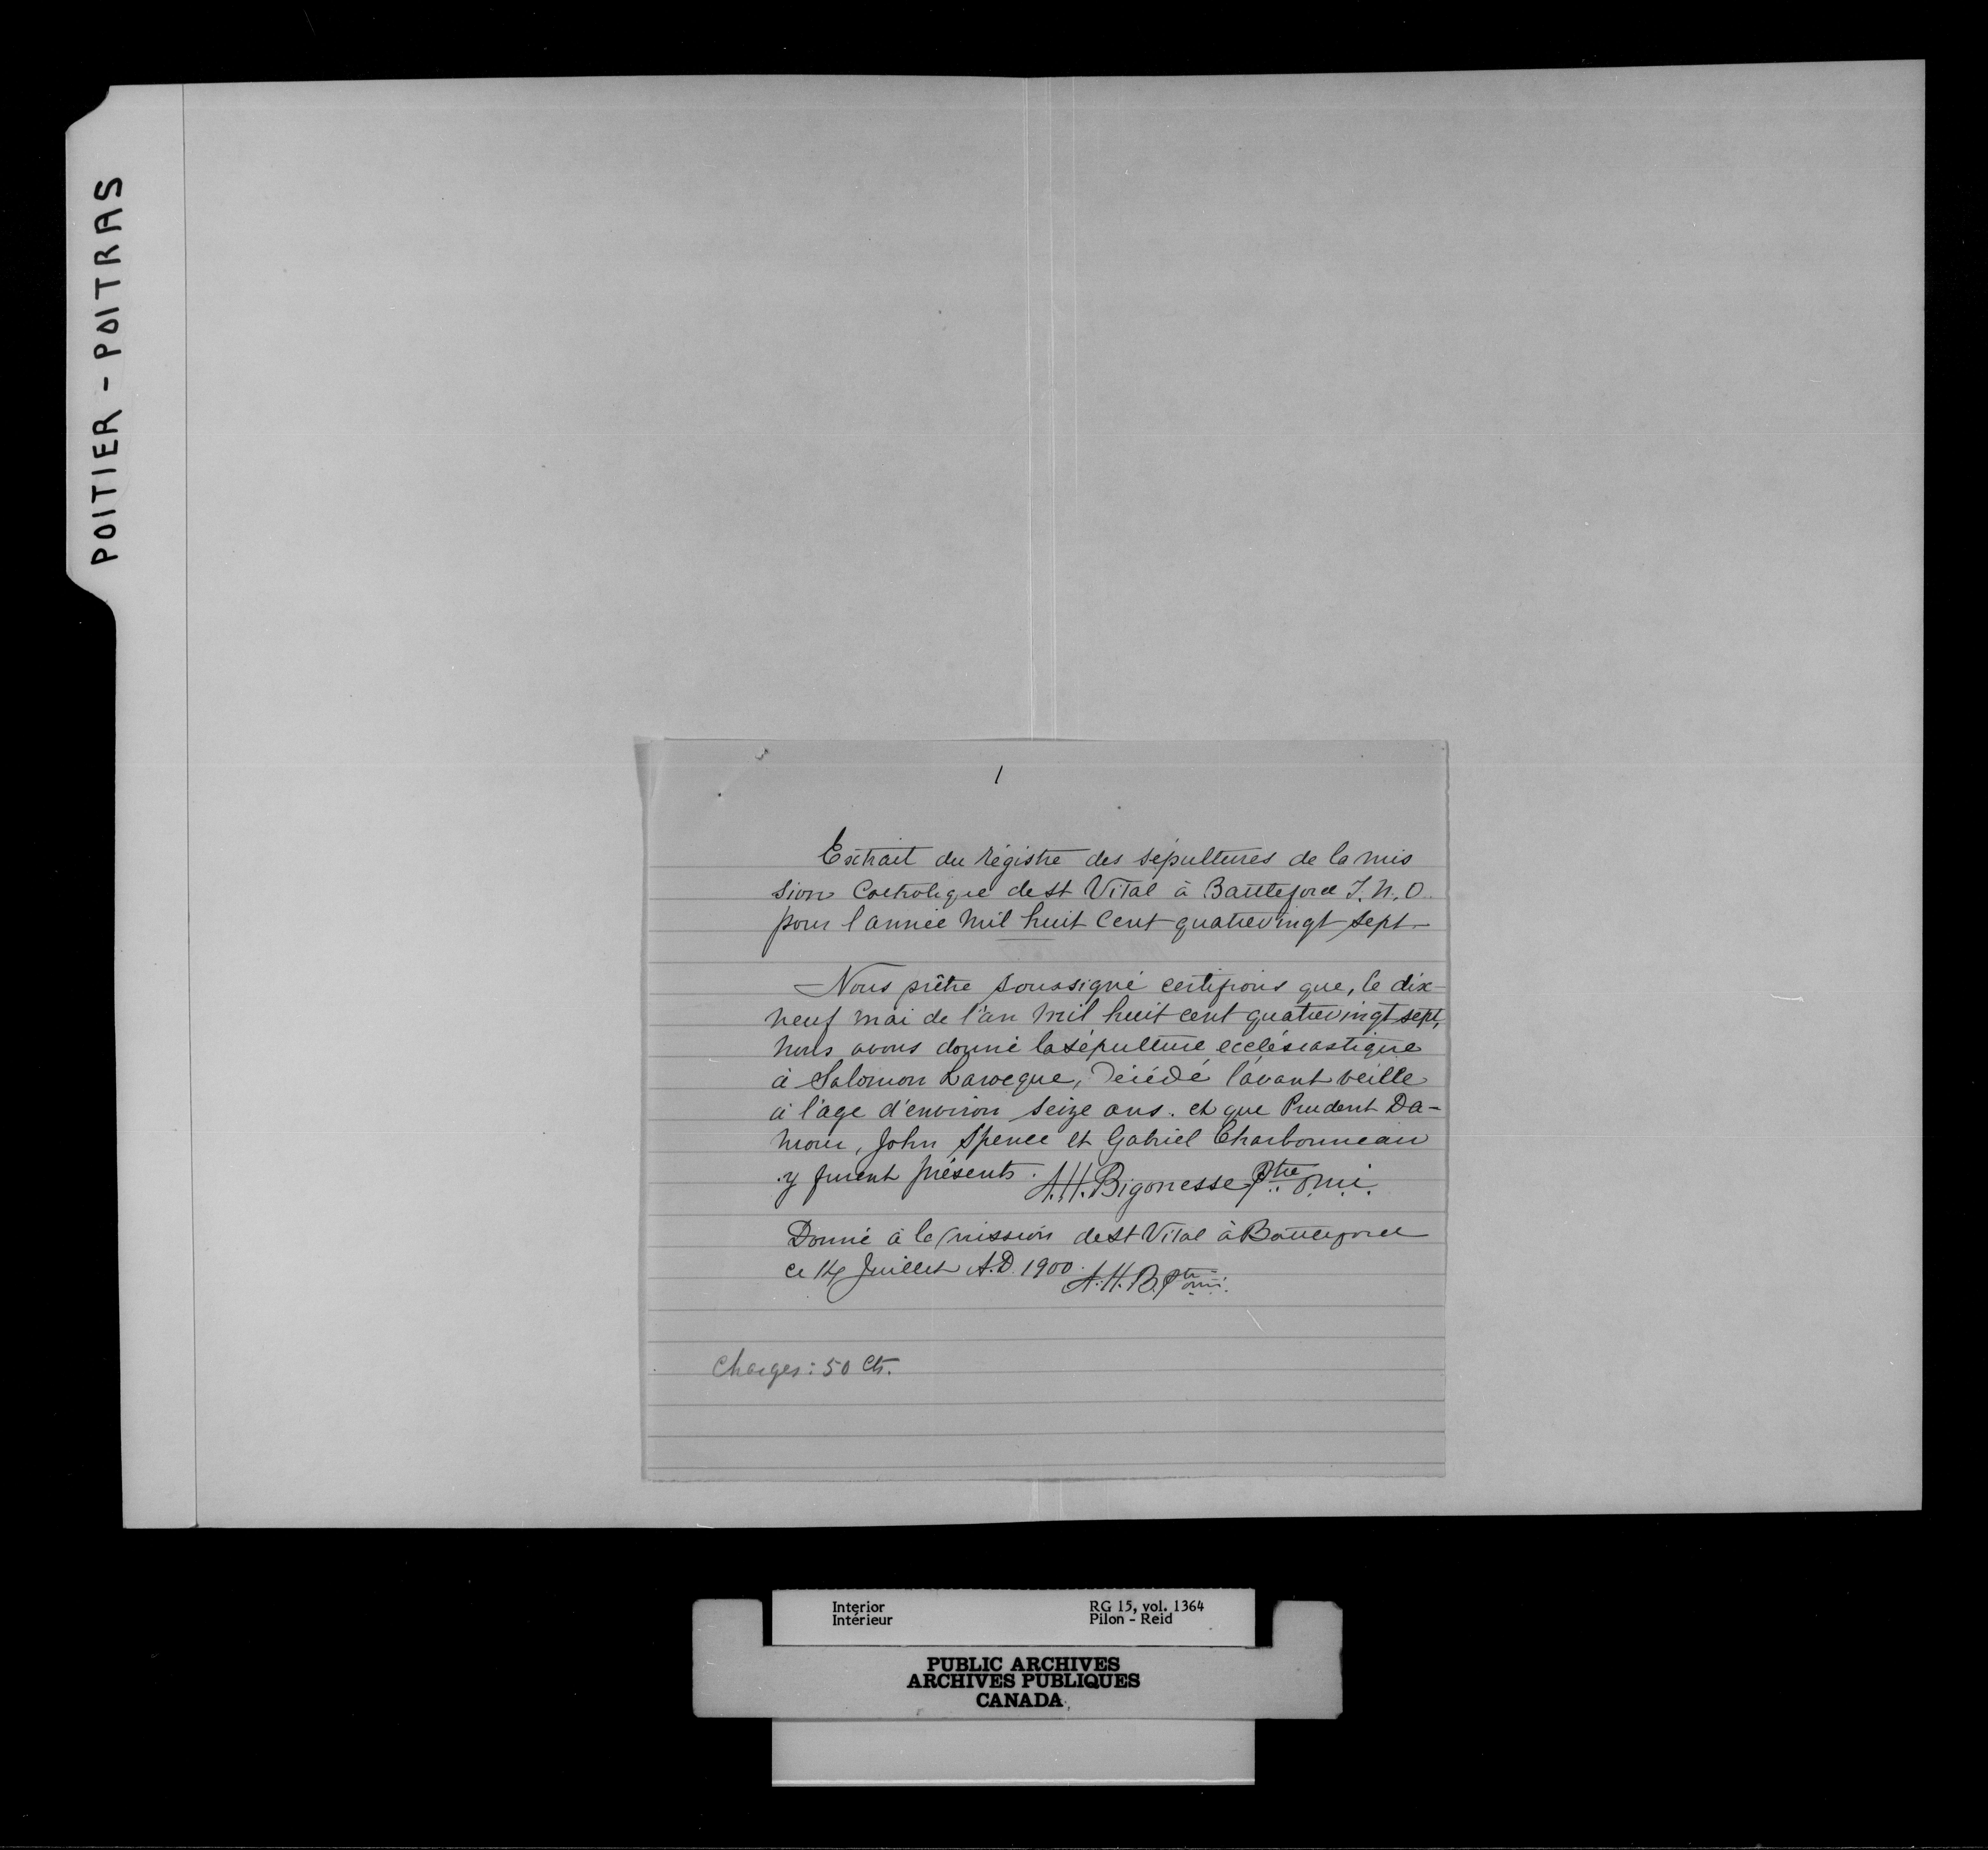 POITIER - POITRAS
1
Extrait du régistre des sépultures de la mis
sion Catholique de st Vital à Battleford T.N.O.
pour l'année mil huit cent quatrevingt sept
Nous prêtre soussigné certifions que, le dix
neuf mai de l'an mil huit cent quatrevingt sept,
nous avons donné la sépulture ecclésiastique
à Salomon Larocque, décédé l'avant veille
à l'age d'environ seize ans. et que Prudent Da-
mour, John Spence et Gabriel Charbonneau
y furent présents. A.H. Bigonesse Ptre o.m.i.
Donné à la mission de St Vital à Battleford
ce 14 Juillet A.D. 1900. A.H.B. Ptre omi.
Charges: 50 Cts.
Interior
Intérieur
RG 15, vol. 1364
Pilon - Reid
PUBLIC ARCHIVES
ARCHIVES PUBLIQUES
CANADA